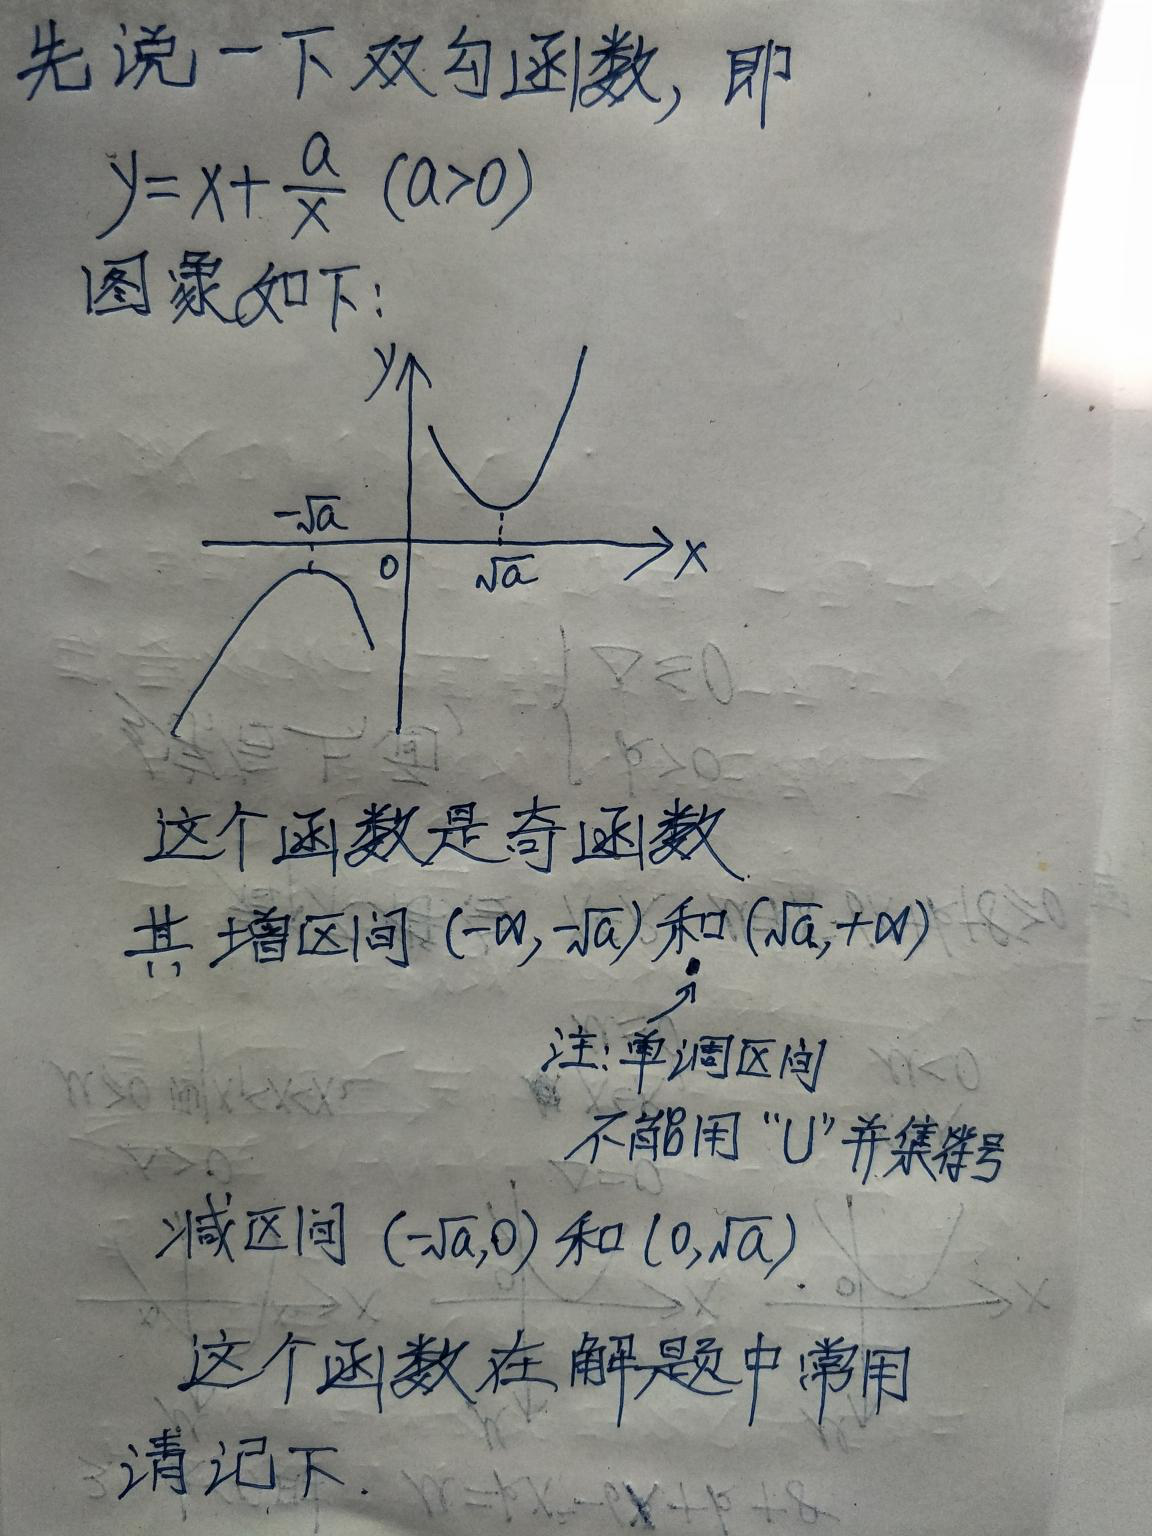 先说一下双勾函数，即
y=x+a/x (a>0)
图象如下：
y
-√a
0
√a
x
这个函数是奇函数
其增区间(-∞,-√a)和(√a,+∞)
注：单调区间
不能用“U”并集符号
减区间(-√a,0)和(0,√a)
这个函数在解题中常用
请记下.